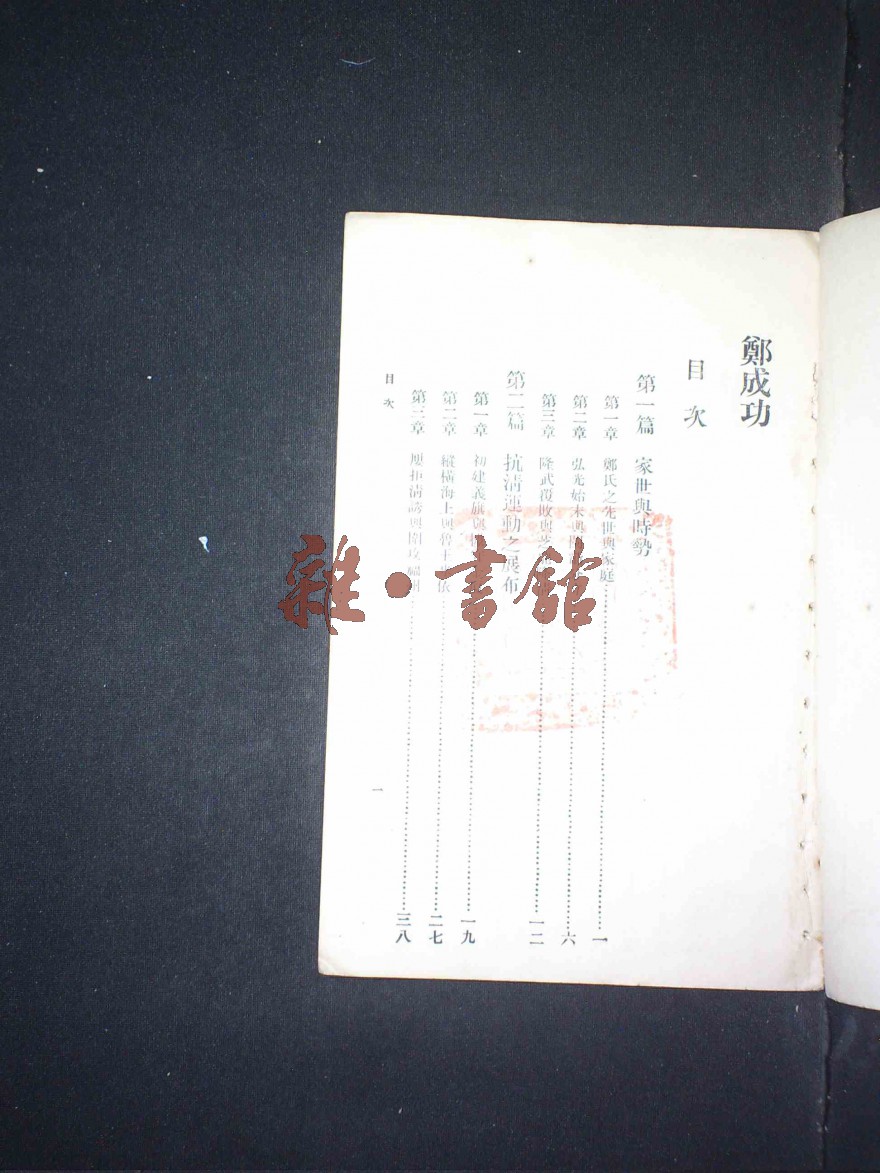 鄭成功
目次
第一篇 家世與時勢
第一章 鄭氏之先世與家庭 一
第二章 弘光始末與 六
第三章 隆武覆敗與芝 一二
第二篇 抗清運動之展布
第一章 初建義旗與 一九
第二章 縱橫海上與魯王 依 二七
第三章 屢拒清誘與圍攻 三八
目次
一
雜·書館